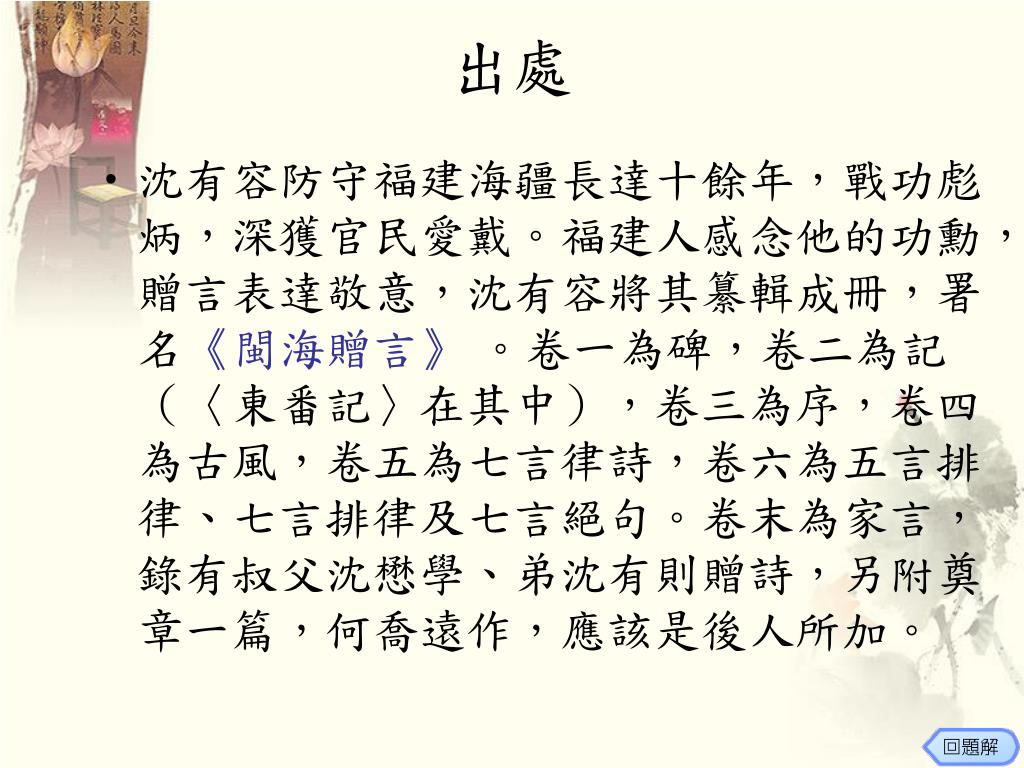 出處
• 沈有容防守福建海疆長達十餘年，戰功彪
炳，深獲官民愛戴。福建人感念他的功勳，
贈言表達敬意，沈有容將其纂輯成冊，署
名《閩海贈言》 。卷一為碑，卷二為記
（〈東番記〉在其中），卷三為序，卷四
為古風，卷五為七言律詩，卷六為五言排
律、七言排律及七言絕句。卷末為家言，
錄有叔父沈懋學、弟沈有則贈詩，另附奠
章一篇，何喬遠作，應該是後人所加。
回題解